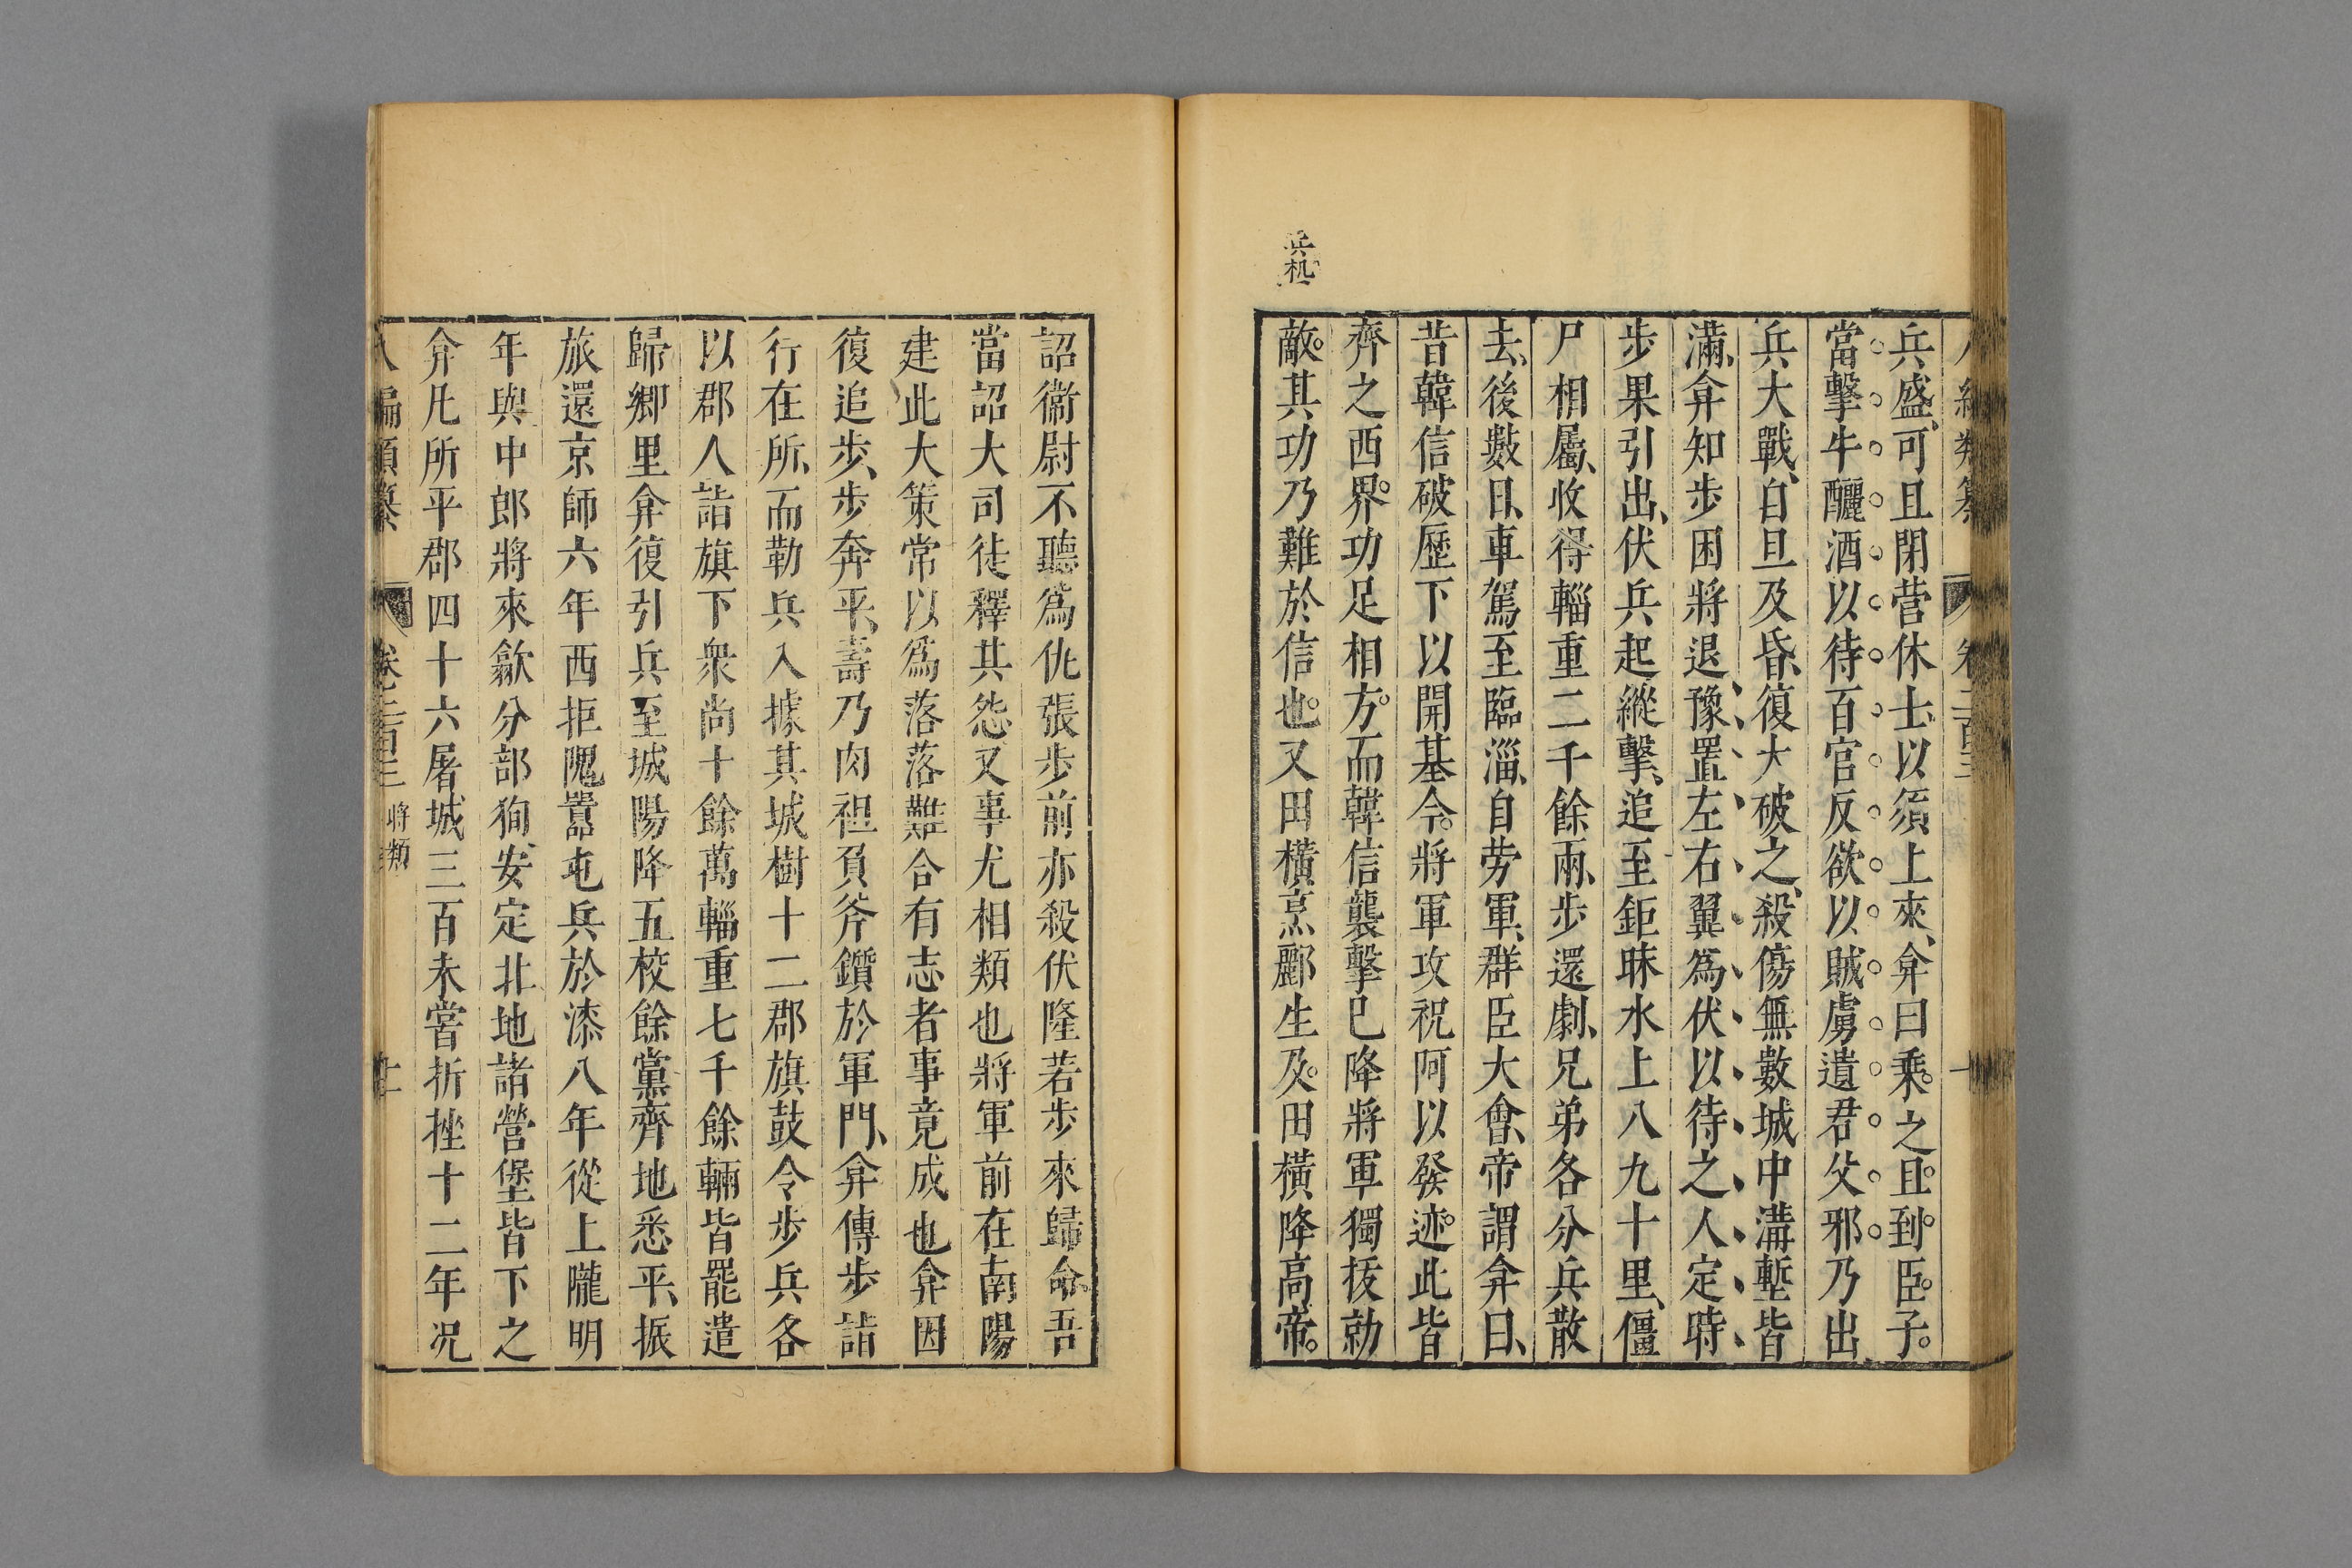 兵盛可且閉營休士以須上來弇曰乘之且到臣子
當擊牛釃酒以待百官反欲以賊虜遺君父邪乃出
兵大戰自旦及昏復大破之殺傷無數城中溝塹皆
滿弇知步困將退豫置左右翼為伏以待之人定時
步果引出伏兵起縱擊追至鉅昧水上八九十里僵
尸相屬收得輜重二千餘兩步還劇兄弟各分兵散
去後數日車駕至臨淄自勞軍群臣大會帝謂弇曰
昔韓信破歷下以開基今將軍攻祝阿以發迹此皆
齊之西界功足相方而韓信襲擊已降將軍獨拔勍
兵机
敵其功乃難於信也又田橫烹酈生及田橫降高帝
詔衞尉不聽為仇張步前亦殺伏隆若步來歸命吾
當詔大司徒釋其怨又事尤相類也將軍前在南陽
建此大策常以為落落難合有志者事竟成也弇因
復追步步奔平壽乃肉袒負斧鑕於軍門弇傳步詣
行在所而勒兵入據其城樹十二郡旗鼓令步兵各
以郡人詣旗下衆尚十餘萬輜重七千餘輛皆罷遣
歸鄉里弇復引兵至城陽降五校餘黨齊地悉平振
旅還京師六年西拒隗囂屯兵於漆八年從上隴明
年與中郎將來歙分部狥安定北地諸營堡皆下之
弇凡所平郡四十六屠城三百未嘗折挫十二年況
八編類纂 卷二百三 將類